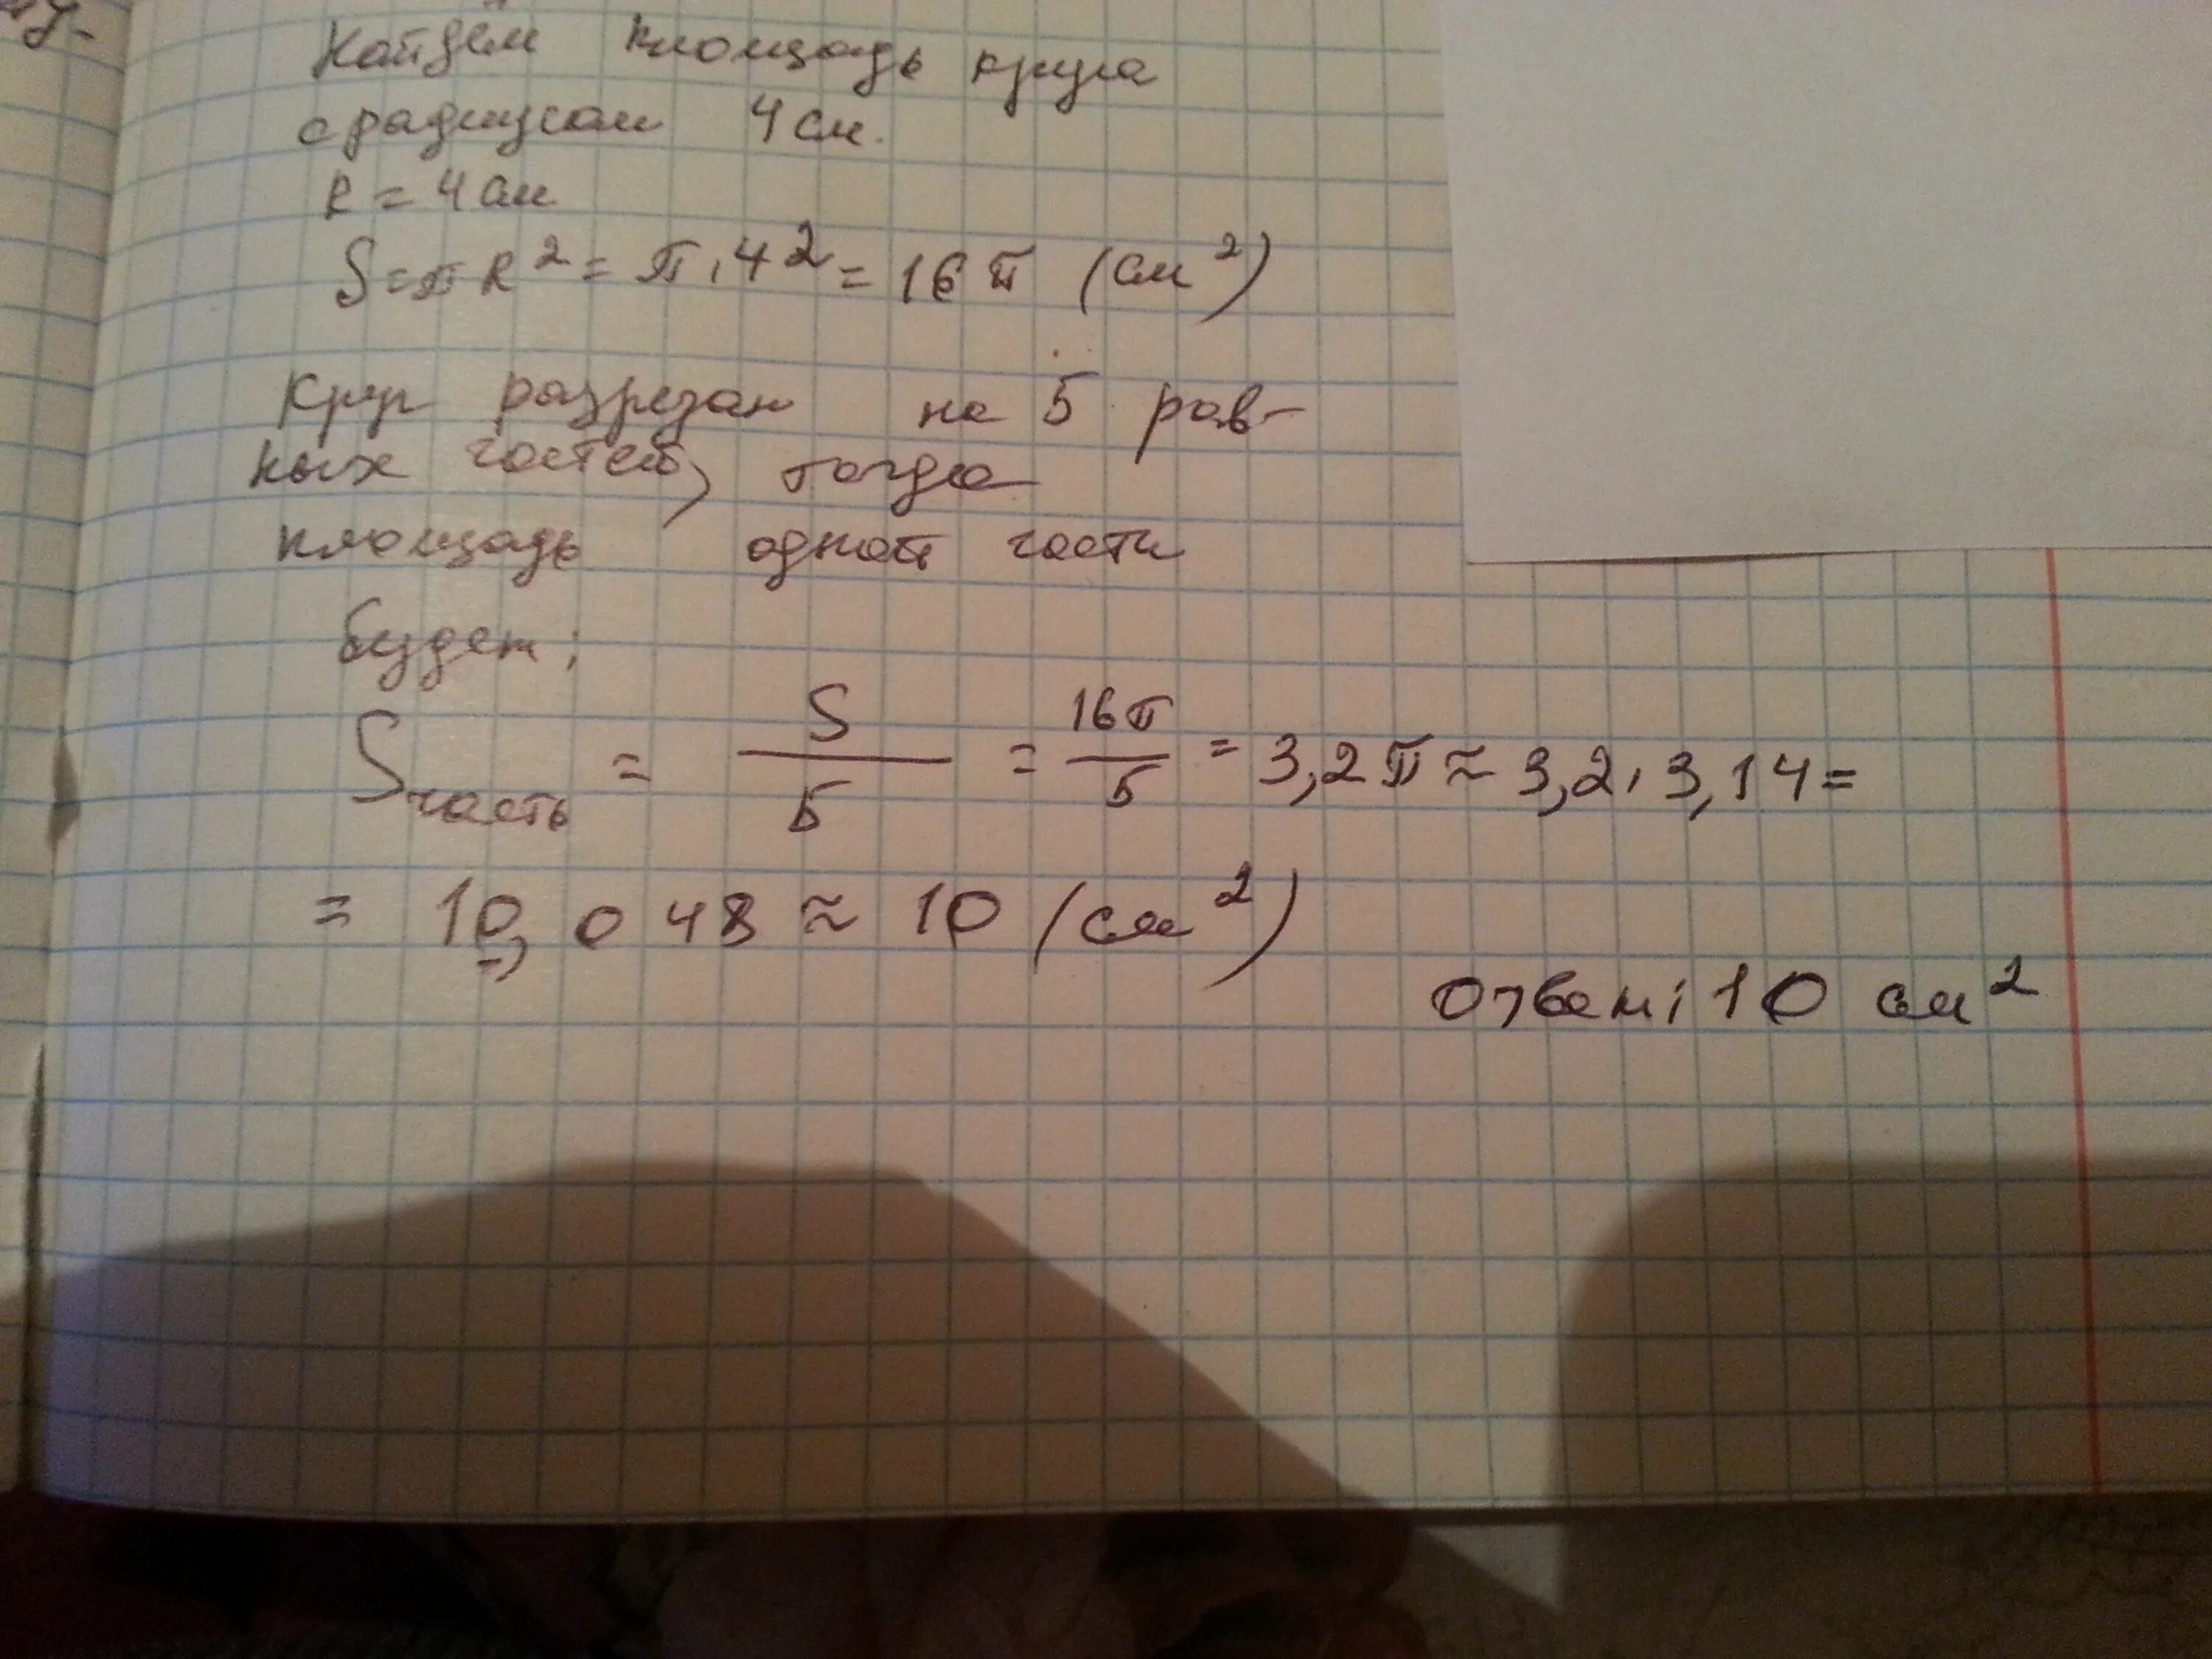 Найдём площадь круга
с радиусом 4 см.
R = 4 см
S = πR² = π · 4² = 16π (см²)
Круг разрезан на 5 рав-
ных частей, тогда
площадь одной части
будет:
Sчасть = S/5 = 16π/5 = 3,2π ≈ 3,2 · 3,14 =
= 10,048 ≈ 10 (см²)
Ответ: 10 см²